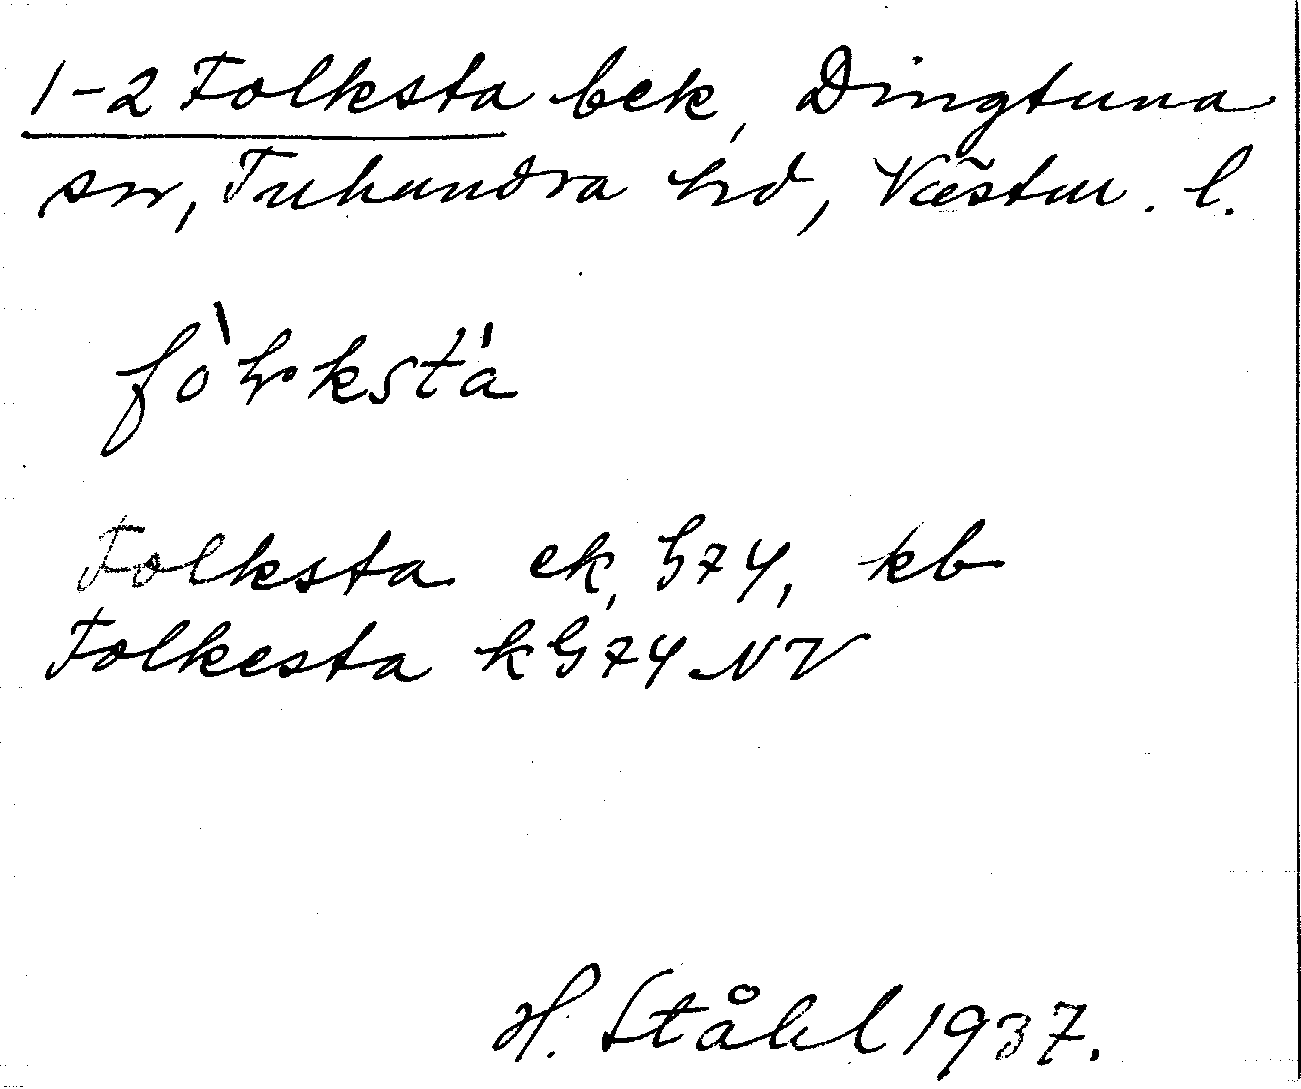 1-2 Folksta bek, Dingtuna
sn, Tuhundra hd, Västm. l.
Folksta ek, G74, kb
Folkesta k G74 NV
H. Ståhl 1937.